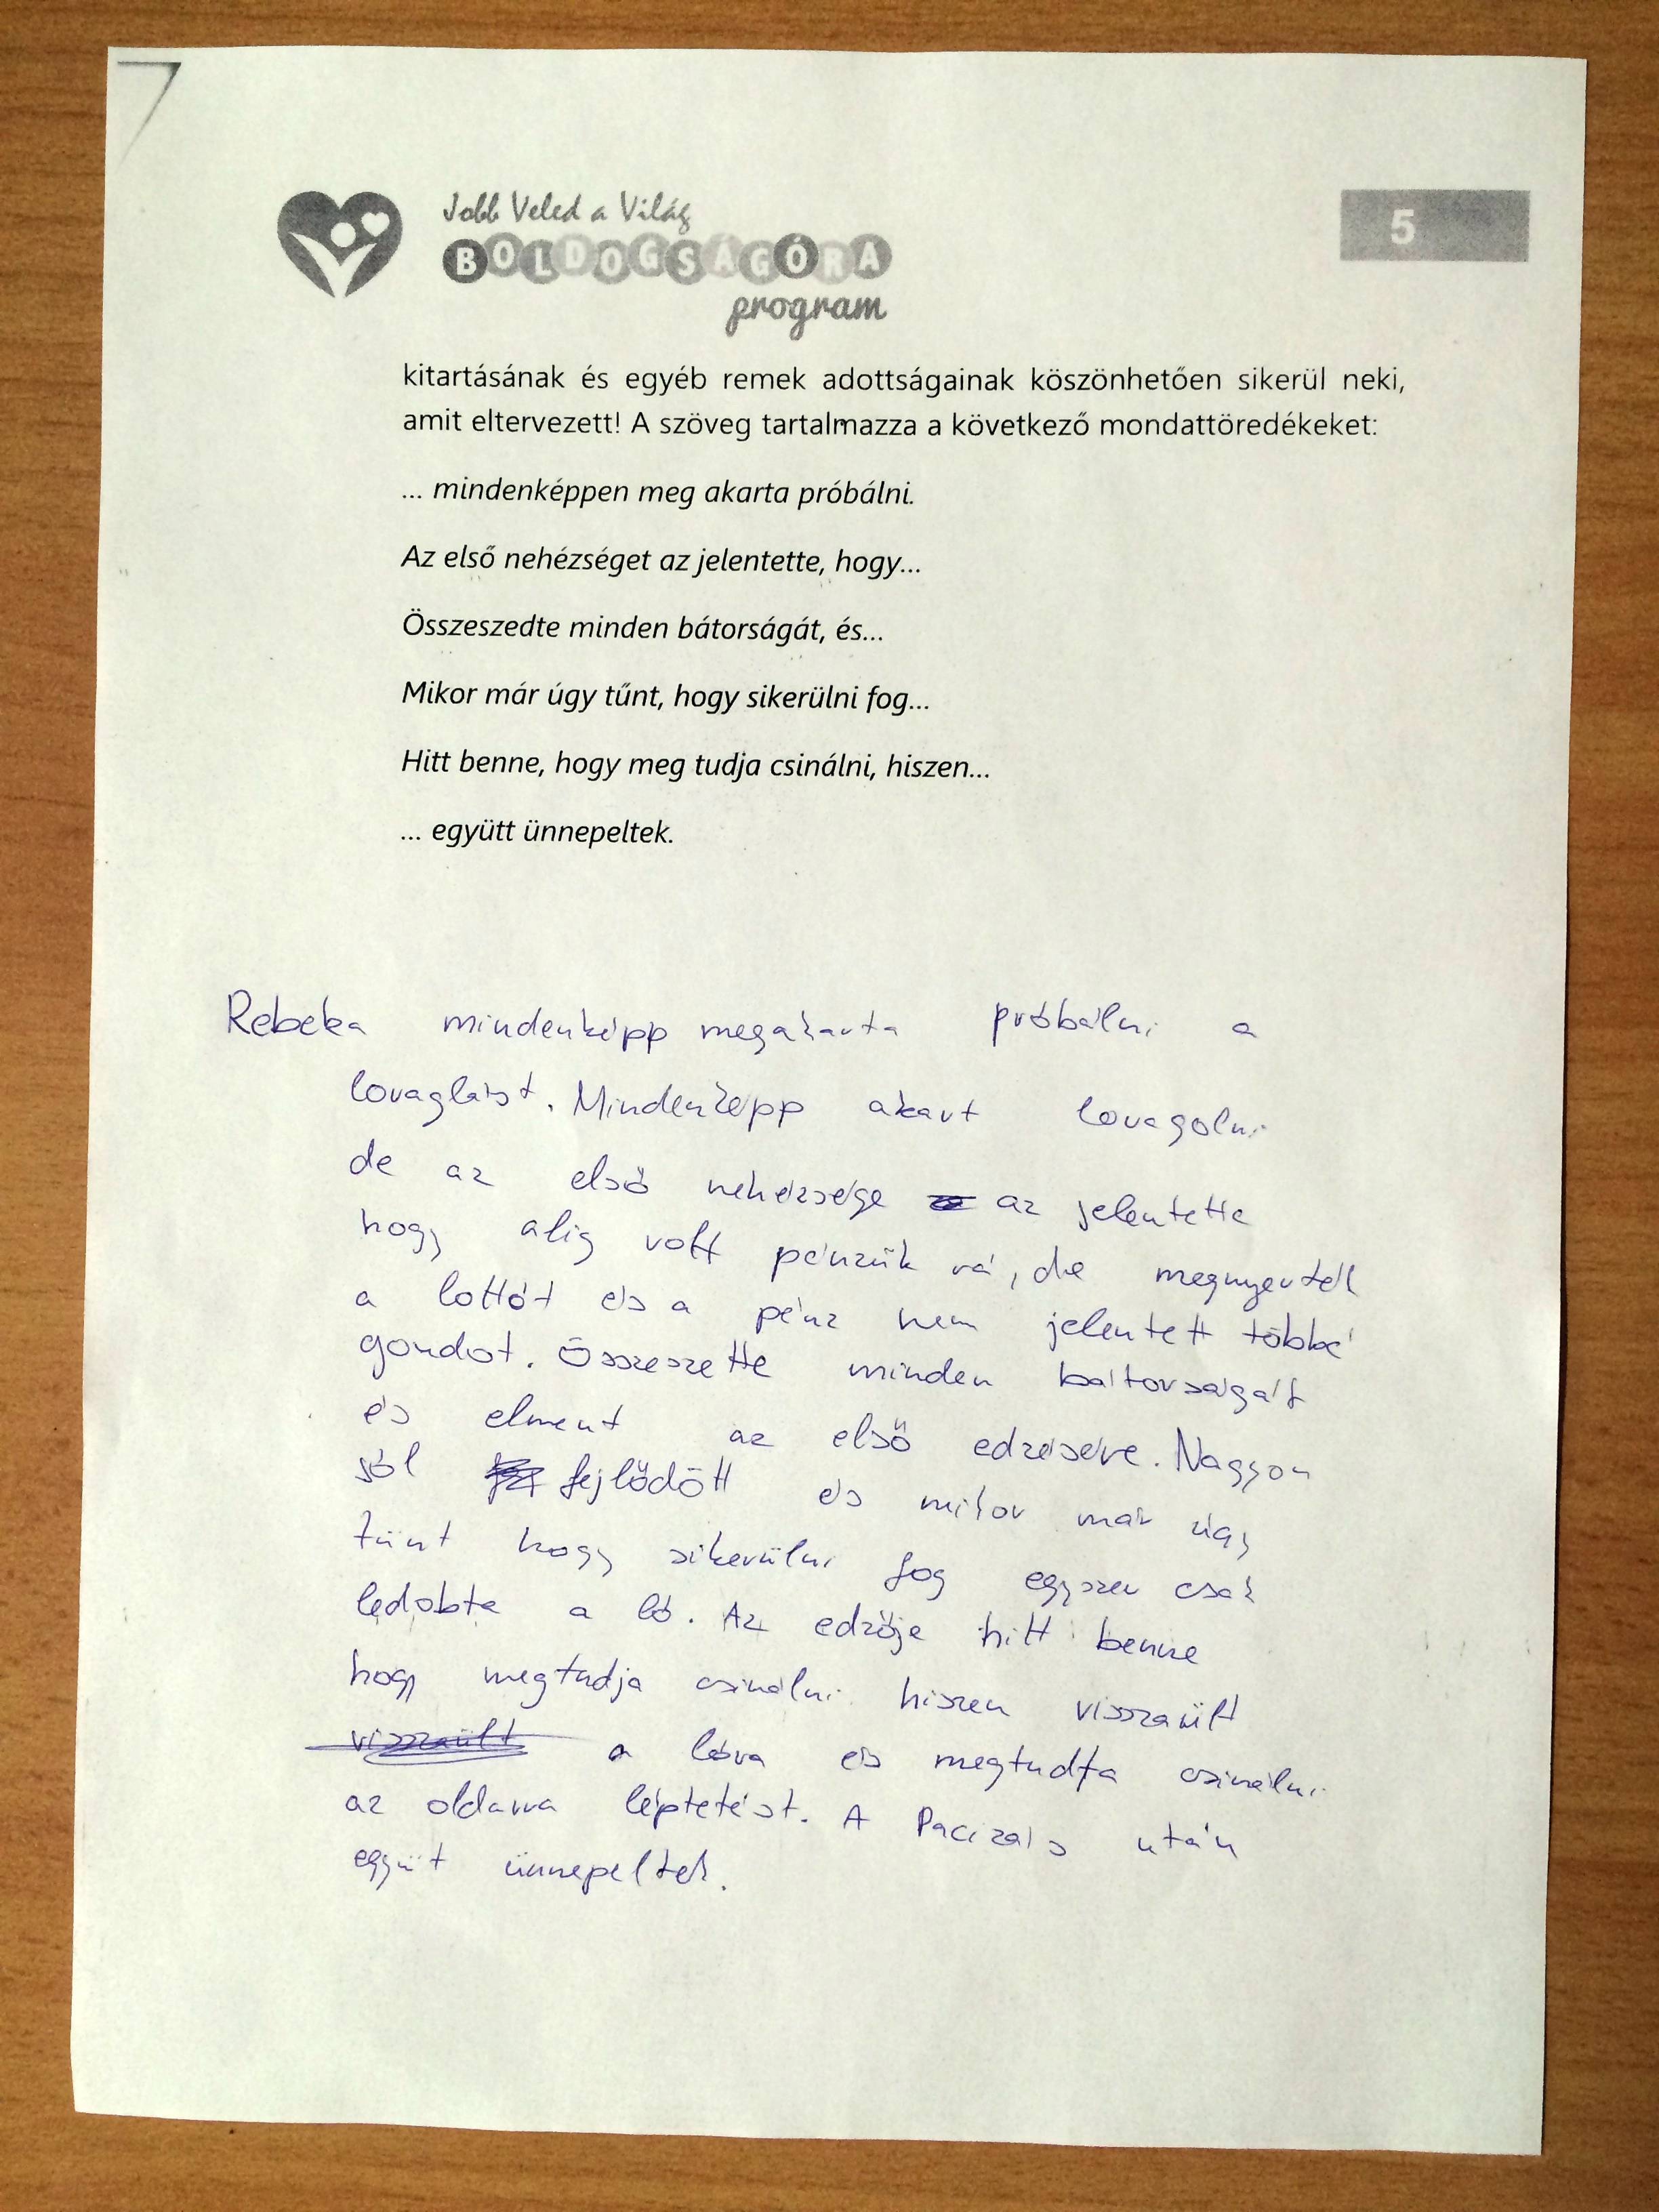 Jobb Veled a Világ
BOLDOGSÁGÓRA
program
5
kitartásának és egyéb remek adottságainak köszönhetően sikerül neki,
amit eltervezett! A szöveg tartalmazza a következő mondattöredékeket:
... mindenképpen meg akarta próbálni.
Az első nehézséget az jelentette, hogy...
Összeszedte minden bátorságát, és...
Mikor már úgy tűnt, hogy sikerülni fog...
Hitt benne, hogy meg tudja csinálni, hiszen...
... együtt ünnepeltek.
Rebeka mindenképp megakarta próbálni a
lovaglást. Mindenképp akart lovagolni
de az első nehézsége az jelentette
hogy alig volt pénzük rá, de megnyerték
a lottót és a pénz nem jelentett többé
gondot. Összeszette minden bátorságát
és elment az első edzésére. Nagyon
jól fejlődött és mikor már úgy
tűnt hogy sikerülni fog egyszer csak
ledobta a ló. Az edzője hitt benne
hogy megtudja csinálni hiszen visszaült
a lóra és megtudta csinálni
az oldarra léptetést. A Pacizás után
együt ünnepeltek.